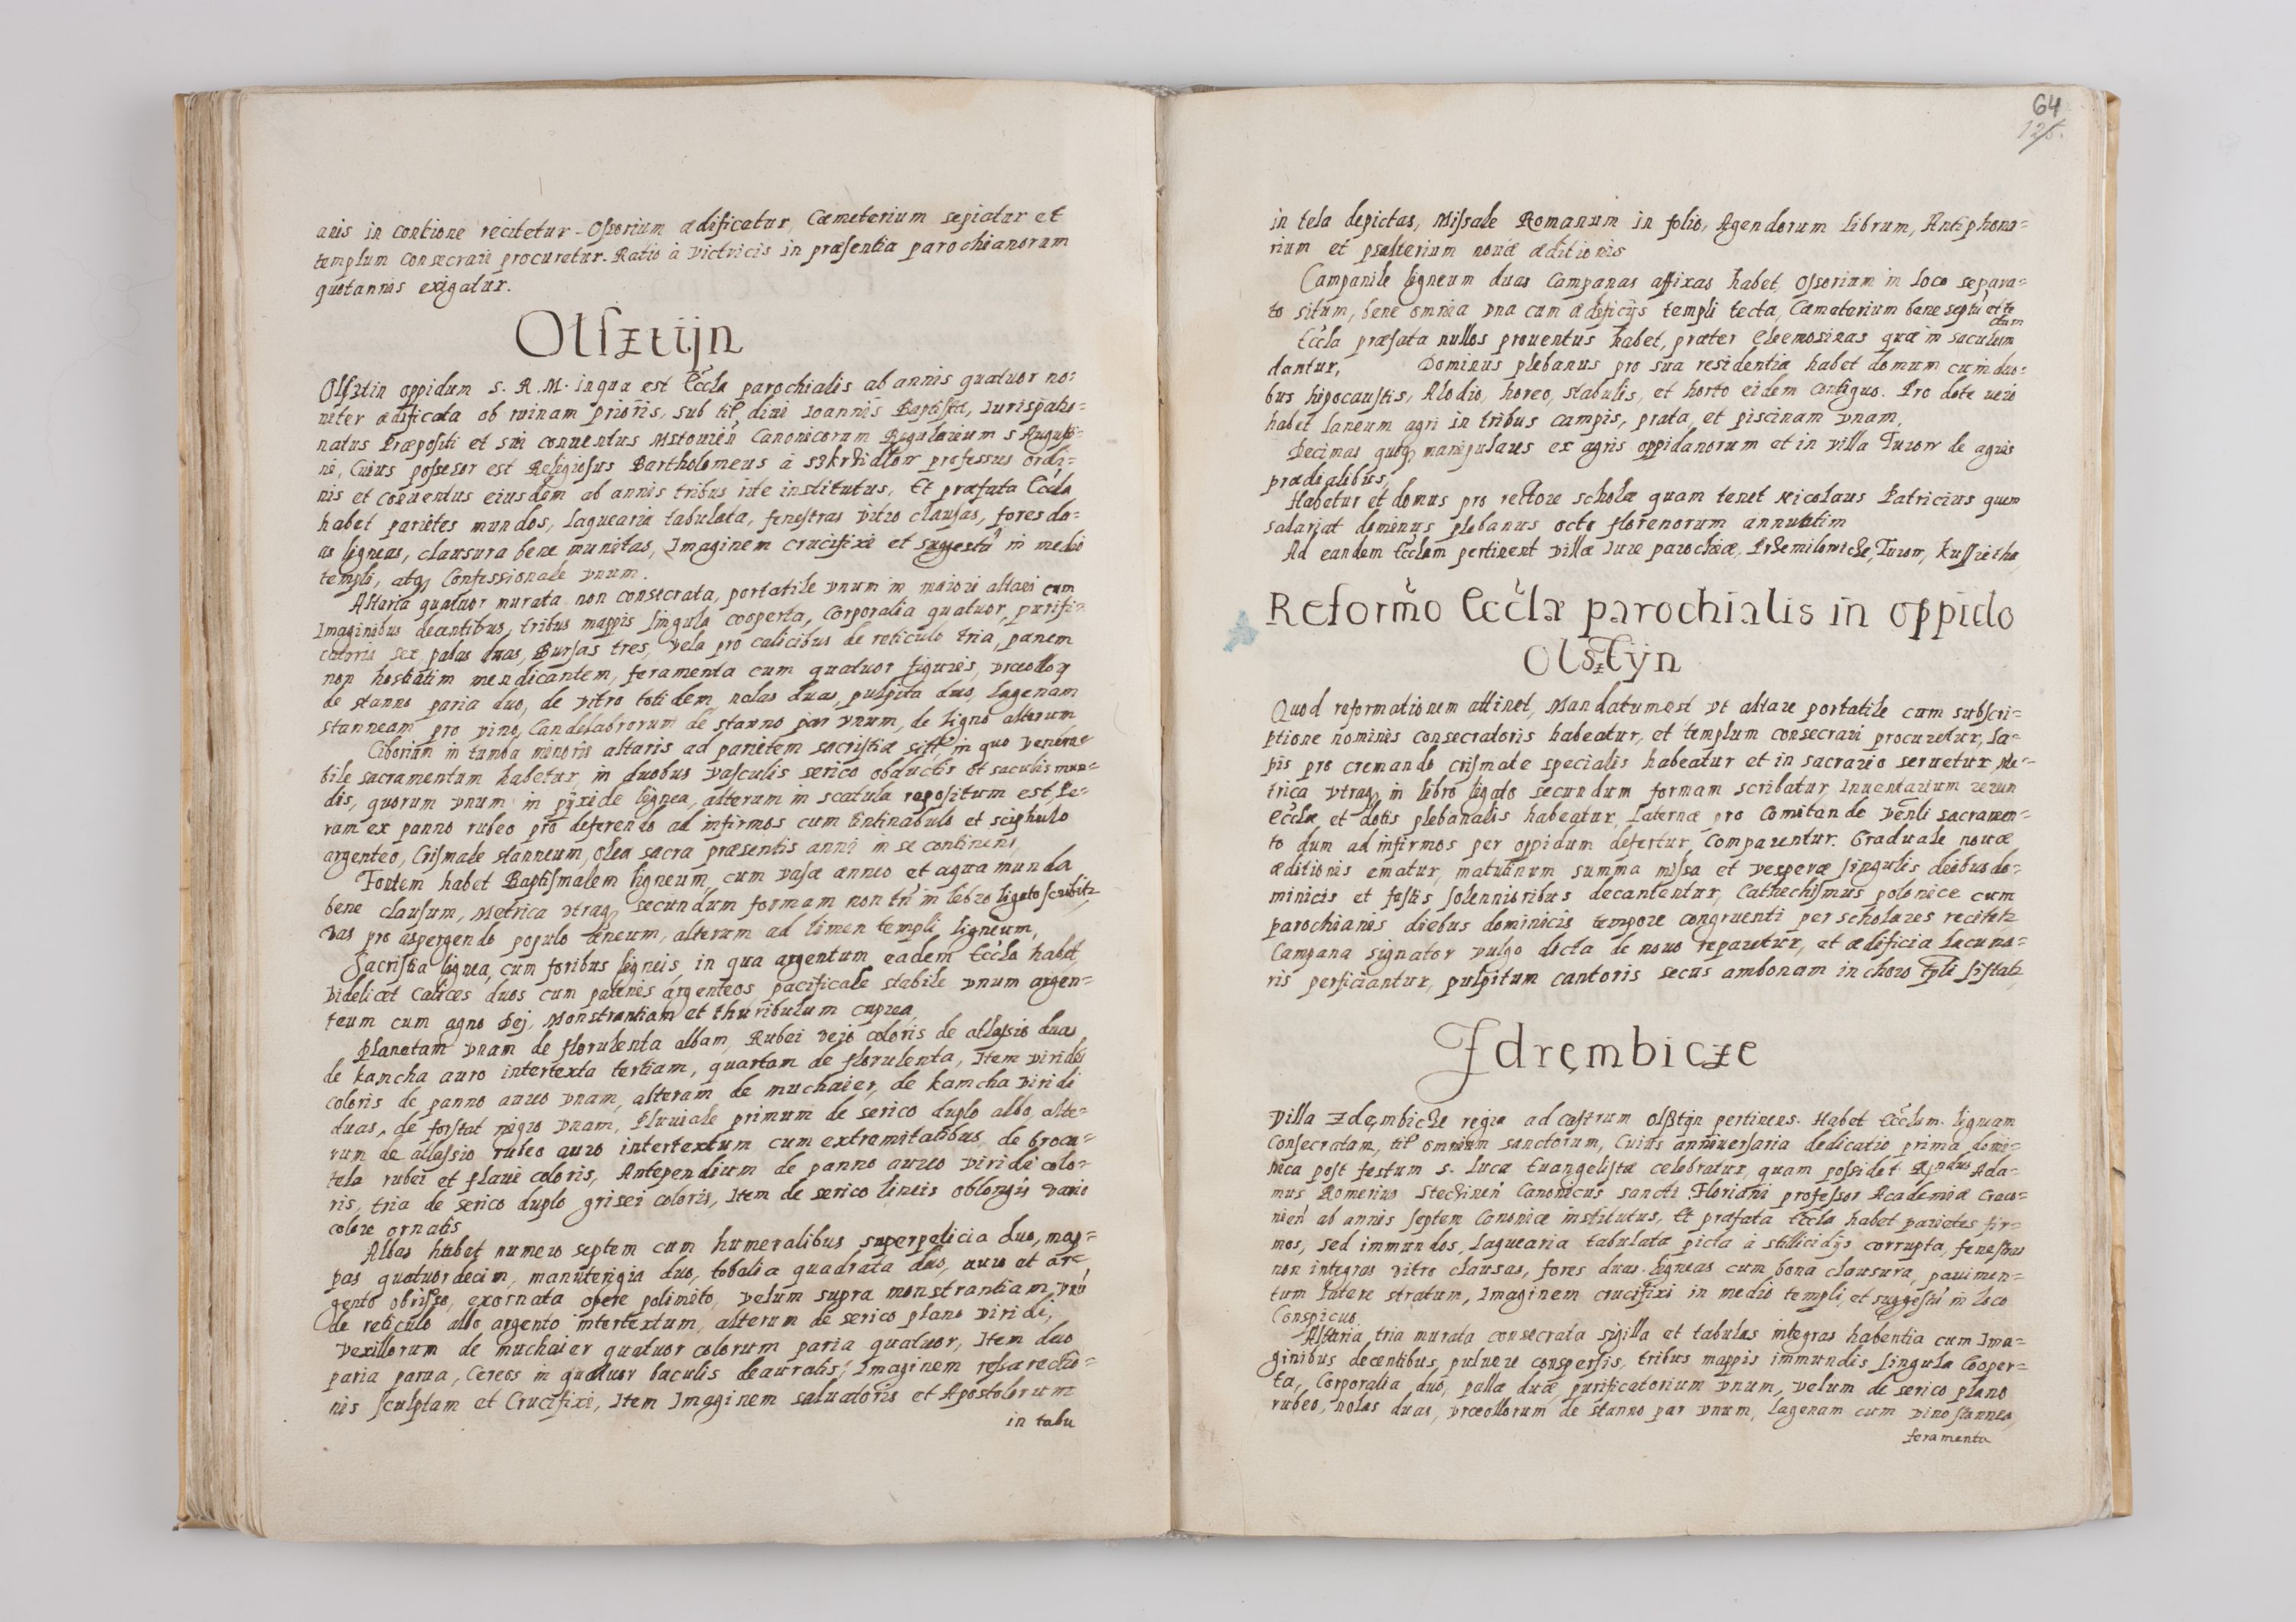 anis in contione recitetur. Ossorium ædificatur, Cæmeterium sepiatur et
templum Consecrari procuretur. Ratio à Victricis in præsentia parochianorum
quotannis exigatur.
Olsztijn
Olsztin oppidum S. R. M. in qua est Eccla parochialis ab annis quatuor no=
niter ædificata ob ruinam prioris, sub til diui Joannis Baptistæ, Jurispatro=
natus Præpositi et sui conuentus Mstouien Canonicorum Regularium S Augusti=
ni, Cuius possesor est Religiosus Bartholomeus à professus ordi=
nis et Conuentus eiusdem ab annis tribus rite institutus, Et præfata Eccla
habet parietes mundos, laquearia tabulata, fenestras vitro clausas, fores du=
as ligneas, clausura bene munitas, Imaginem crucifixi et suggestũ in medio
templi, atq Confessionale vnum.
Altaria quatuor murata non consecrata, portatile vnum in maiori altari cum
Imaginibus decentibus, tribus mappis singula cooperta, Corporalia quatuor, purifi=
catoria sex, palas duas, Bursas tres, Vela pro calicibus de reticulo tria, panem
non hostiatim mendicantem, feramenta cum quatuor figuris, vrceolloꝝ
de stanno paria duo, de vitro totidem, nolas duas, pulpita duo, lagenam
stanneam pro vino, Candelabrorum de stanno par vnum, de ligno alterum
Ciborium in tumba minoris altaris ad parietem sacristiæ in quo venera=
bile sacramentum habetur, in duobus vasculis serico obductis et saculis mun=
dis, quorum vnum in pyxide lignea, alterum in scatula repositum est, Pe=
ram ex panno rubeo pro deferendo ad infirmos cum tintinabulo et sciphulo
argenteo, Crismale stanneum, olea sacra præsentis anni in se continens,
Fontem habet Baptismalem ligneum, cum vase æneo et aqua munda
bene clausum, Metrica vtraq secundum formam non in libro ligato scribitr,
Vas pro aspergendo populo æneum, alterum ad limen templi ligneum,
Sacristia lignea, cum foribus ligneis in qua argentum eadem Eccla habet
videlicet Calices duos cum patenis argenteos pacificale stabile vnum argen=
teum cum agno Dej, Monstrantiam et thuribulum cuprea,
Planetam vnam de florulenta albam, Rubei vero coloris de atlassio duas
de kancha auro intertexta tertiam, quartam de florulenta, Item viridis
coloris de panno aureo vnam, alteram de muchaier, de kamcha viridi
duas, de forstat nigro vnam, Pluuiale primum de serico duplo albo, alte=
rum de atlassio rubeo auro intertextum cum extremitatibus, de broca=
tela rubei et flaui coloris, Antependium de panno aureo viridi colo=
ris, tria de serico duplo grisei coloris, Item de serico lineis oblongis vario
colore ornatis
Albas habet numero septem cum humeralibus superpelicia duo, map=
pas quatuordecim, manutergia duo, tobalia quadrata duo, auro et ar=
gento obrisso, exornata opere polimito, velum supra monstrantiam, vnũ
de reticulo albo argento intertextum, alterum de serico plano viridi,
Vexillorum de muchaier quatuor colorum paria quatuor, Item duo
paria parua, Cereos in quatuor baculis deauratis, Imaginem resurectio=
nis sculptam et Crucifixi, Item Imaginem saluatoris et Apostolorum
in tabu
64
125.
in tela depictas, Missale Romanum in folio, Agendorum librum, Antiphona=
rium et psalterium nouæ æditionis
Campanile ligneum duas Campanas affixas habet, Ossorium in loco separa=
to situm, bene omnia vna cum ædificijs templi tecta, Cæmeterium bene septũ et te
ctum
Eccla præfata nullos prouentus habet, præter Eleemosinas quæ in saculum
dantur, Dominus plebanus pro sua residentia habet domum cum duo=
bus hipocaustis, Alodio, horeo, stabulis, et horto eidem contiguo. Pro dote vero
habet laneum agri in tribus campis, prata, et piscinam vnam,
Decimas quoq manipulares ex agris oppidanorum et in villa Turow de agris
prædialibus,
Habetur et domus pro rectore scholæ quam tenet Nicolaus Patricius quem
salariat dominus plebanus octo florenorum annuatim
Ad eandem Ecclam pertinent villæ Jure parochiæ, Przemilowicze, Turow, Kussietha,
Reformo Ecclæ parochialis in oppido
Olsztyn
Quod reformationem attinet, Mandatum est vt altare portatile cum subscri=
ptione nominis consecratoris habeatur, et templum consecrari procuretur, la=
pis pro cremando crismate specialis habeatur et in sacrario seruetur, Me=
trica vtraq in libro ligato secundum formam scribatur, Inuentarium rerum
Ecclæ et dotis plebanalis habeatur, laternæ pro Comitando Venli sacramen=
to dum ad infirmos per oppidum defertur, Comparentur. Graduale nouæ
æditionis ematur, matutinum summa missa et vesperæ singulis diebus do=
minicis et festis solennioribus decantentur, Cathechismus polonice cum
parochianis diebus dominicis tempore congruenti per scholares recitetr
Campana signator vulgo dicta de nouo reparetur, et ædificia lacuna=
ris perficiantur, pulpitum cantoris secus ambonam in choro tpli sistatr
Zdrembicze
Villa Zdrembicze regia ad castrum Olsztijn pertinens. Habet Ecclam ligneam
Consecratam, til omnium sanctorum, Cuius anniuersaria dedicatio prima domi=
nica post festum S. Lucæ Euangelistæ celebratur, quam possidet Rndus Ada=
mus Romerius Canonicus Sancti Floriani professor Academiæ Craco=
nien ab annis septem Canonice institutus, Et præfata Eccla habet parietes fir=
mos, sed immundos, laquearia tabulata picta à stillicidijs corrupta, fenestras
non integras vitro clausas, fores duas ligneas cum bona clausura, pauimen=
tum latere stratum, Imaginem crucifixi in medio templi, et suggestũ in loco
Conspicuo,
Altaria tria murata consecrata sigilla et tabulas integras habentia cum Ima=
ginibus decentibus, puluere conspersis, tribus mappis immundis singula Cooper=
ta, Corporalia duo, pallæ duæ, purificatorium vnum, velum de serico plano
rubeo, nolas duas, vrceollorum de stanno par vnum, lagenam cum vino stannea,
feramenta